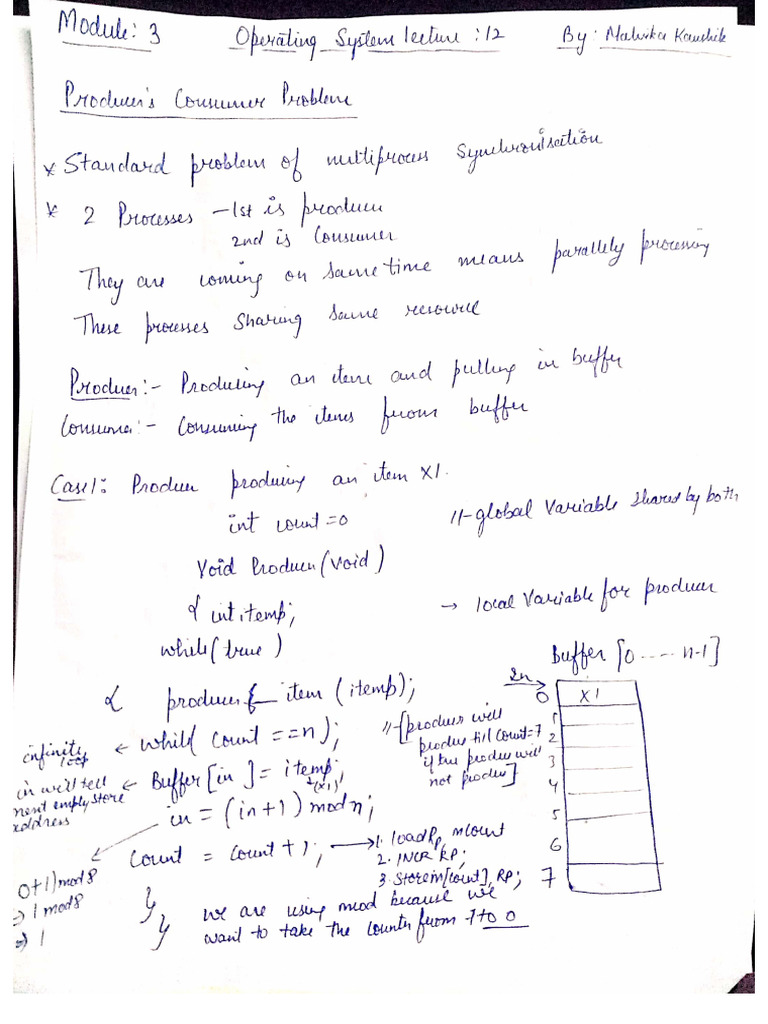 Module: 3 Operating System lecture : 12 By: Malvika Kaushik
Producer's Consumer Problem
* Standard problem of multiprocess Synchronisation
* 2 Processes - 1st is producer
2nd is Consumer
They are coming on same time means parallely processing
These processes sharing same resource
Producer:- Producing an item and putting in buffer
Consumer:- Consuming the items from buffer
Case 1: Producer producing an item X1.
int count = 0 //-global Variable shared by both
Void Producer (void)
{ int itemp; → local Variable for producer
while (true)
Buffer [0 ---- n-1]
{ producer item (itemp);
in → 0 X1
infinity loop ← while (count == n); //-[producer will
produce till count=7
if the producer will
not produce]
in will tell next empty store address ← Buffer [in] = itemp; (x1)
in = (in+1) mod n;
Count = Count + 1; → 1. load Rp, mcount
2. INCR RP;
3. Store m[count], RP;
0+1) mod 8
⇒ 1 mod 8
⇒ 1
}
}
1
2
3
4
5
6
7
we are using mod because we
want to take the counter from 7 to 0